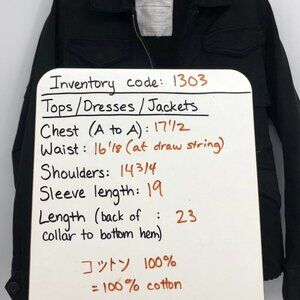 Inventory code: 1303
Tops/Dresses/Jackets
Chest (A to A): 17 1/2
Waist: 16 1/8 (at draw string)
Shoulders: 14 3/4
Sleeve length: 19
Length (back of : 23
collar to bottom hem)
コットン 100%
= 100% cotton